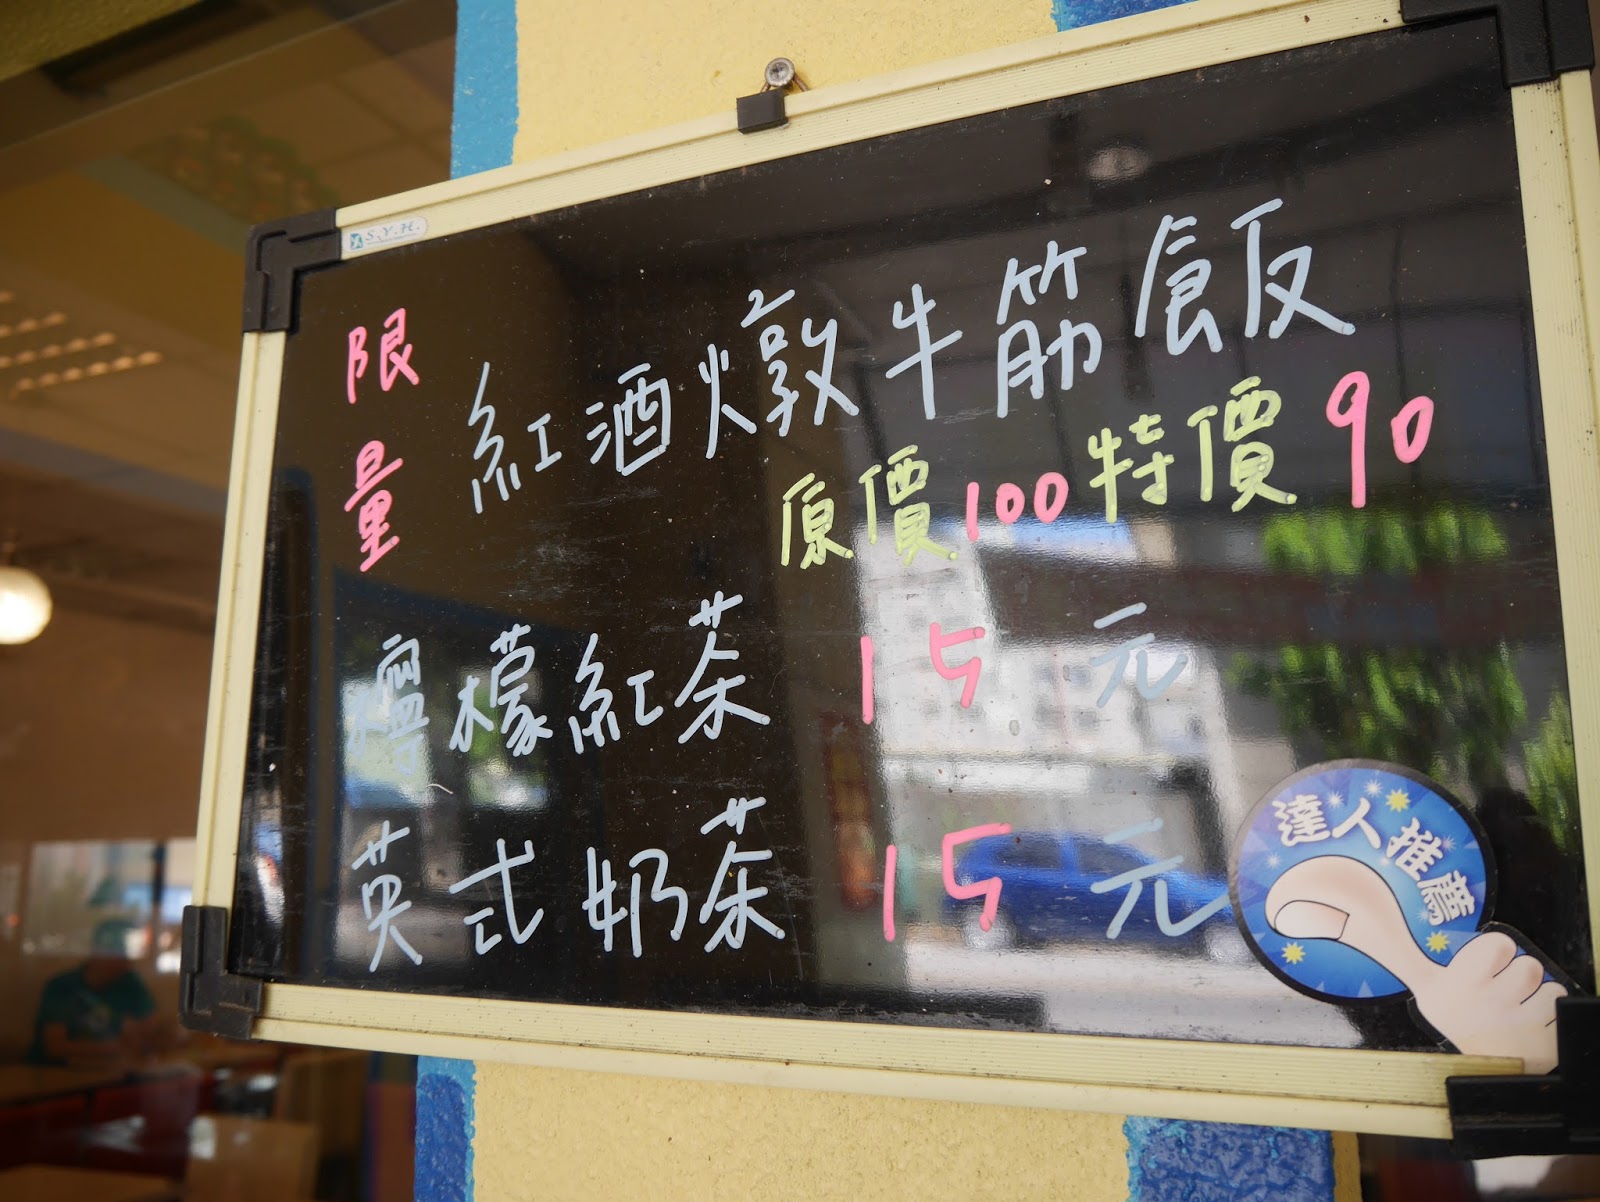 S.Y.H.
限量
紅酒燉牛筋飯
原價100特價90
檸檬紅茶 15 元
英式奶茶 15 元
達人推薦